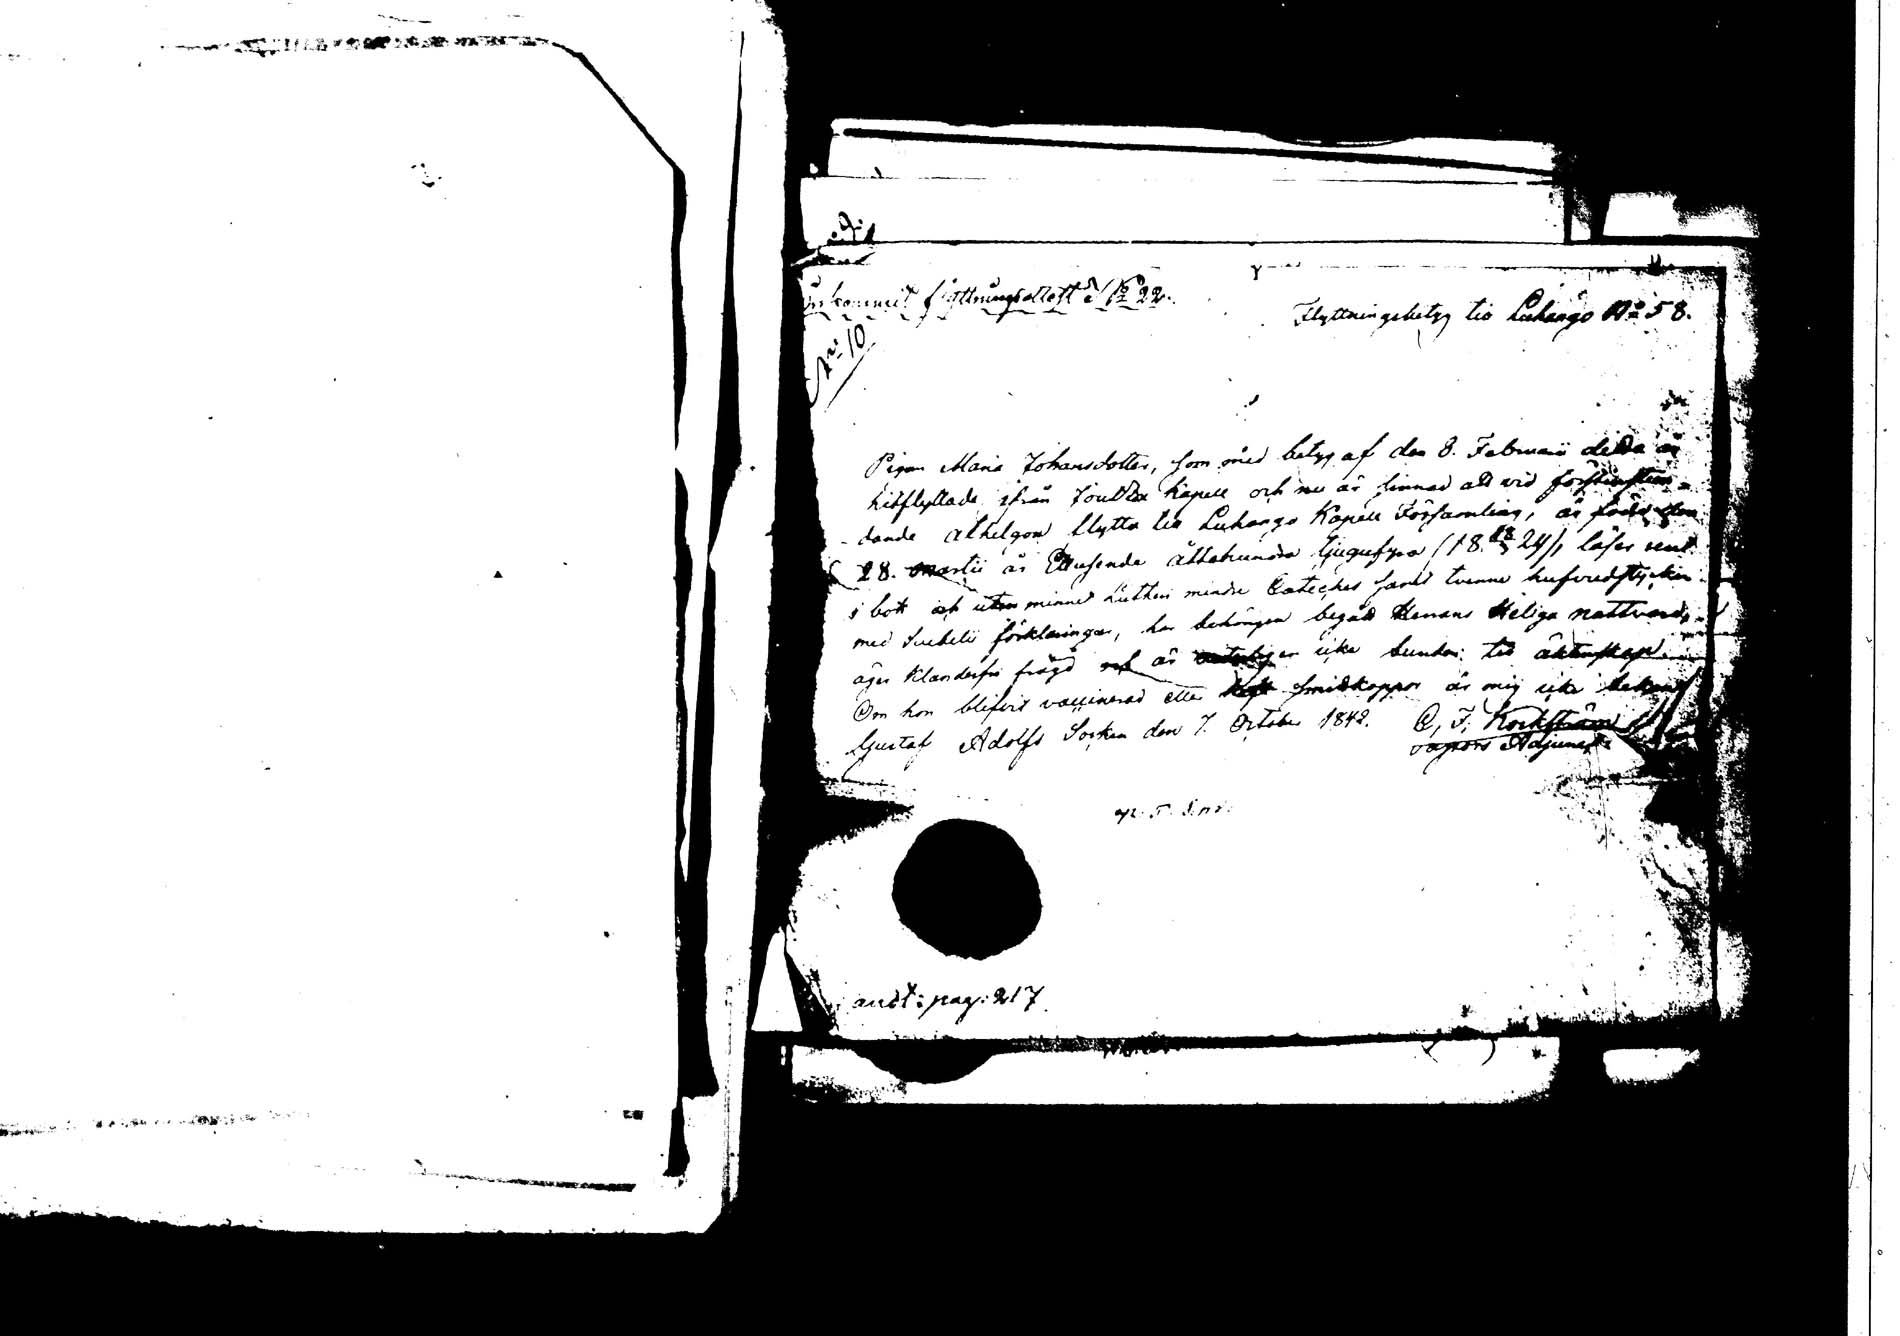 Inkommit flyttningsattest å No 22.
Flyttningsbetyg till Luhango No 58.
No 10
Pigan Maria Johansdotter, som med betyg af den 8. Februarii detta år
hitflyttade ifrån Joutsa Kapell och nu är sinnad att vid förstinstun-
dande Alhelgon flytta till Luhango Kapell Församling, är född den
28. Martii år Ettusende åttahundra tjugufyra (18 28/3 24), läser rent
i bok och utan minnet Lutheri mindre Cateches samt tvenne hufvudstycken
med Svebelii förklaringar, har behörigen begått Herrans Heliga nattvard,
äger klanderfri frägd och är icke bunden till äktenskap.
Om hon blifvit vaccinerad eller haft smittkoppor är mig icke bekant
Gustaf Adolfs Socken den 7. October 1842. C. F. Rockström
Pastors Adjunct
andt: pag: 217.